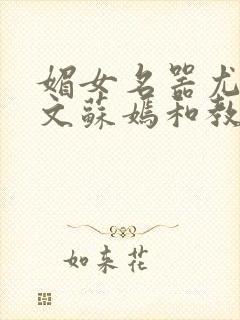 媚女名器尤
文蘇媽和教
如来花